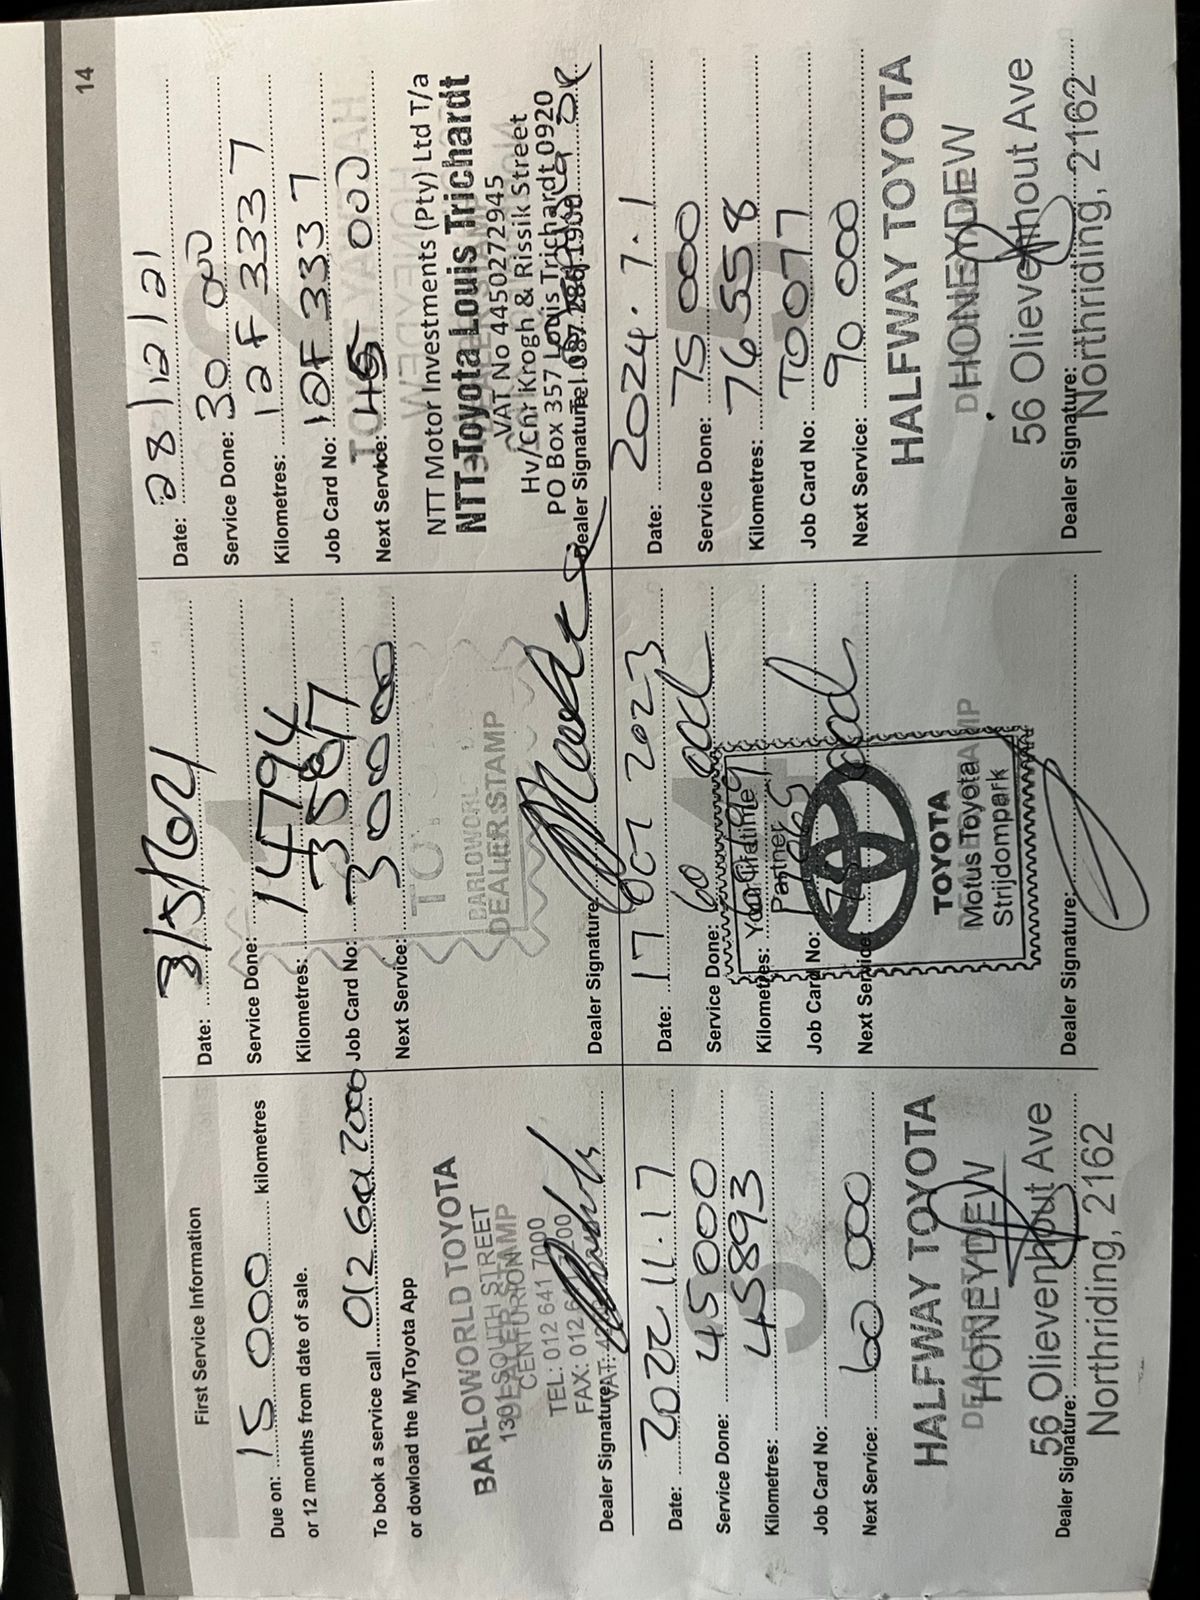 14
First Service Information
Due on: 15 000 kilometres
or 12 months from date of sale.
To book a service call 012 641 7000
or dowload the MyToyota App
BARLOWORLD TOYOTA
130 SOUTH STREET
CENTURION
TEL: 012 641 7000
Dealer Signature:
Date: 3/5/2021
Service Done:
Kilometres: 14794
Job Card No: 35817
Next Service: 30000
BARLOWORLD
DEALER STAMP
Dealer Signature:
Date: 28/12/21
Service Done: 30 000
Kilometres: 12F3337
Job Card No: 12F3337
Next Service: 45 000
NTT Motor Investments (Pty) Ltd T/a
NTT Toyota Louis Trichardt
VAT No 4450272945
Hv/Cnr Krogh & Rissik Street
PO Box 357 Louis Trichardt 0920
Dealer Signature:
Date: 2022.11.17
Service Done: 45000
Kilometres: 45893
Job Card No:
Next Service: 60 000
HALFWAY TOYOTA
HONEYDEW
56 Olievenhout Ave
Dealer Signature:
Northriding, 2162
Date: 17 OCT 2023
Service Done: 60 000
Kilometres:
Your Lifetime
Partner
Job Card No:
Next Service:
TOYOTA
Motus Toyota
Strijdompark
Dealer Signature:
Date: 2024.7.1
Service Done: 75 000
Kilometres: 76558
Job Card No: T0077
Next Service: 90 000
HALFWAY TOYOTA
HONEYDEW
56 Olievenhout Ave
Dealer Signature:
Northriding, 2162